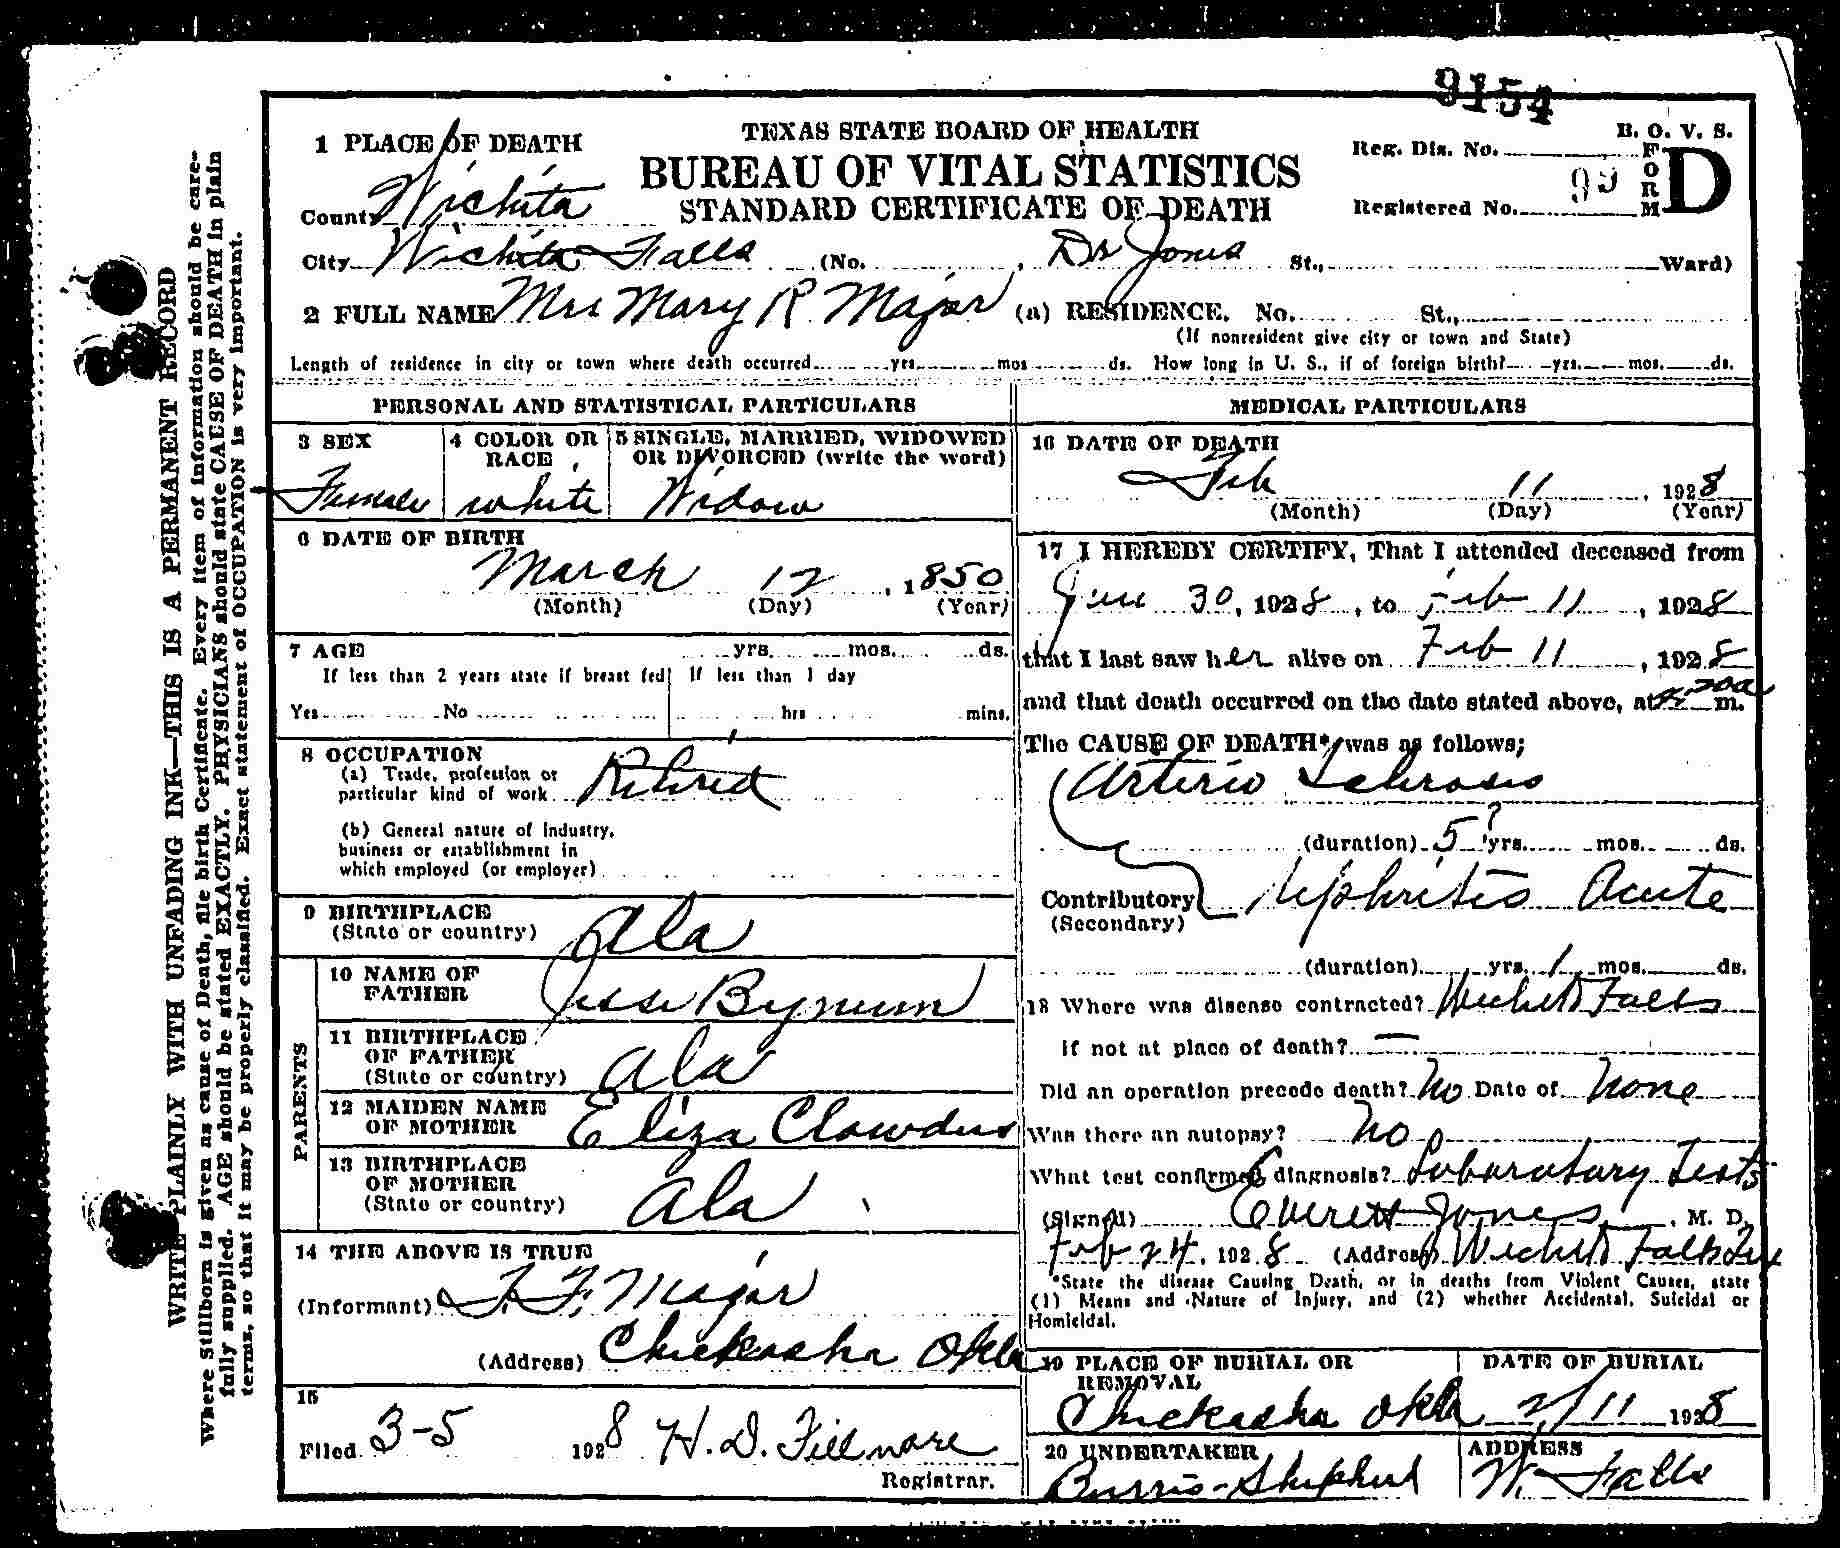 9154
TEXAS STATE BOARD OF HEALTH
BUREAU OF VITAL STATISTICS
STANDARD CERTIFICATE OF DEATH
B. O. V. S.
FORM D
Reg. Dis. No.
Registered No. 99
1 PLACE OF DEATH
County Wichita
City Wichita Falls (No. , Dr Jones St., Ward)
2 FULL NAME Mrs Mary R Major (a) RESIDENCE. No. St.,
(If nonresident give city or town and State)
Length of residence in city or town where death occurred yrs. mos ds. How long in U. S., if of foreign birth? yrs. mos. ds.
PERSONAL AND STATISTICAL PARTICULARS
3 SEX
Female
4 COLOR OR RACE
white
5 SINGLE, MARRIED, WIDOWED
OR DIVORCED (write the word)
Widow
6 DATE OF BIRTH
March 12, 1850
(Month) (Day) (Year)
7 AGE yrs. mos. ds.
If less than 2 years state if breast fed If less than 1 day
Yes No hrs mins.
8 OCCUPATION
(a) Trade, profession or
particular kind of work Retired
(b) General nature of Industry,
business or establishment in
which employed (or employer)
9 BIRTHPLACE
(State or country) Ala
PARENTS
10 NAME OF
FATHER Jesse Bynum
11 BIRTHPLACE
OF FATHER
(State or country) Ala
12 MAIDEN NAME
OF MOTHER Eliza Clowdus
13 BIRTHPLACE
OF MOTHER
(State or country) Ala
14 THE ABOVE IS TRUE
(Informant) F. F. Major
(Address) Chickasha Okla
15
Filed 3-5 1928 H. D. Fillmore
Registrar.
MEDICAL PARTICULARS
16 DATE OF DEATH
Feb 11, 1928
(Month) (Day) (Year)
17 I HEREBY CERTIFY, That I attended deceased from
30, 1928, to Feb 11, 1928
that I last saw her alive on Feb 11, 1928
and that death occurred on the date stated above, at m.
The CAUSE OF DEATH* was as follows;
Arterio Sclerosis
(duration) 5? yrs. mos. ds.
Contributory Nephritis Acute
(Secondary)
(duration) yrs. 1 mos. ds.
18 Where was disease contracted? Wichita Falls
if not at place of death? —
Did an operation precede death? No Date of None
Was there an autopsy? No
What test confirmed diagnosis? Laboratory Tests
(Signed) Everett Jones, M. D.
Feb 24, 1928 (Address) Wichita Falls Tex
*State the disease Causing Death, or in deaths from Violent Causes, state
(1) Means and Nature of Injury, and (2) whether Accidental, Suicidal or
Homicidal.
19 PLACE OF BURIAL OR
REMOVAL
Chickasha Okla
DATE OF BURIAL
2/11 1928
20 UNDERTAKER
Burris-Shepherd
ADDRESS
W. Falls
WRITE PLAINLY WITH UNFADING INK—THIS IS A PERMANENT RECORD
Where Stillborn is given as cause of Death, file birth Certificate. Every item of information should be care-
fully supplied. AGE should be stated EXACTLY. PHYSICIANS should state CAUSE OF DEATH in plain
terms, so that it may be properly classified. Exact statement of OCCUPATION is very important.